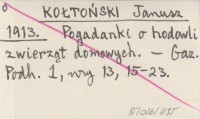 KOŁTOŃSKI Janusz
1913. Pogadanki o hodowli
zwierząt domowych. – Gaz.
Podh. 1, nry 13, 15-23.